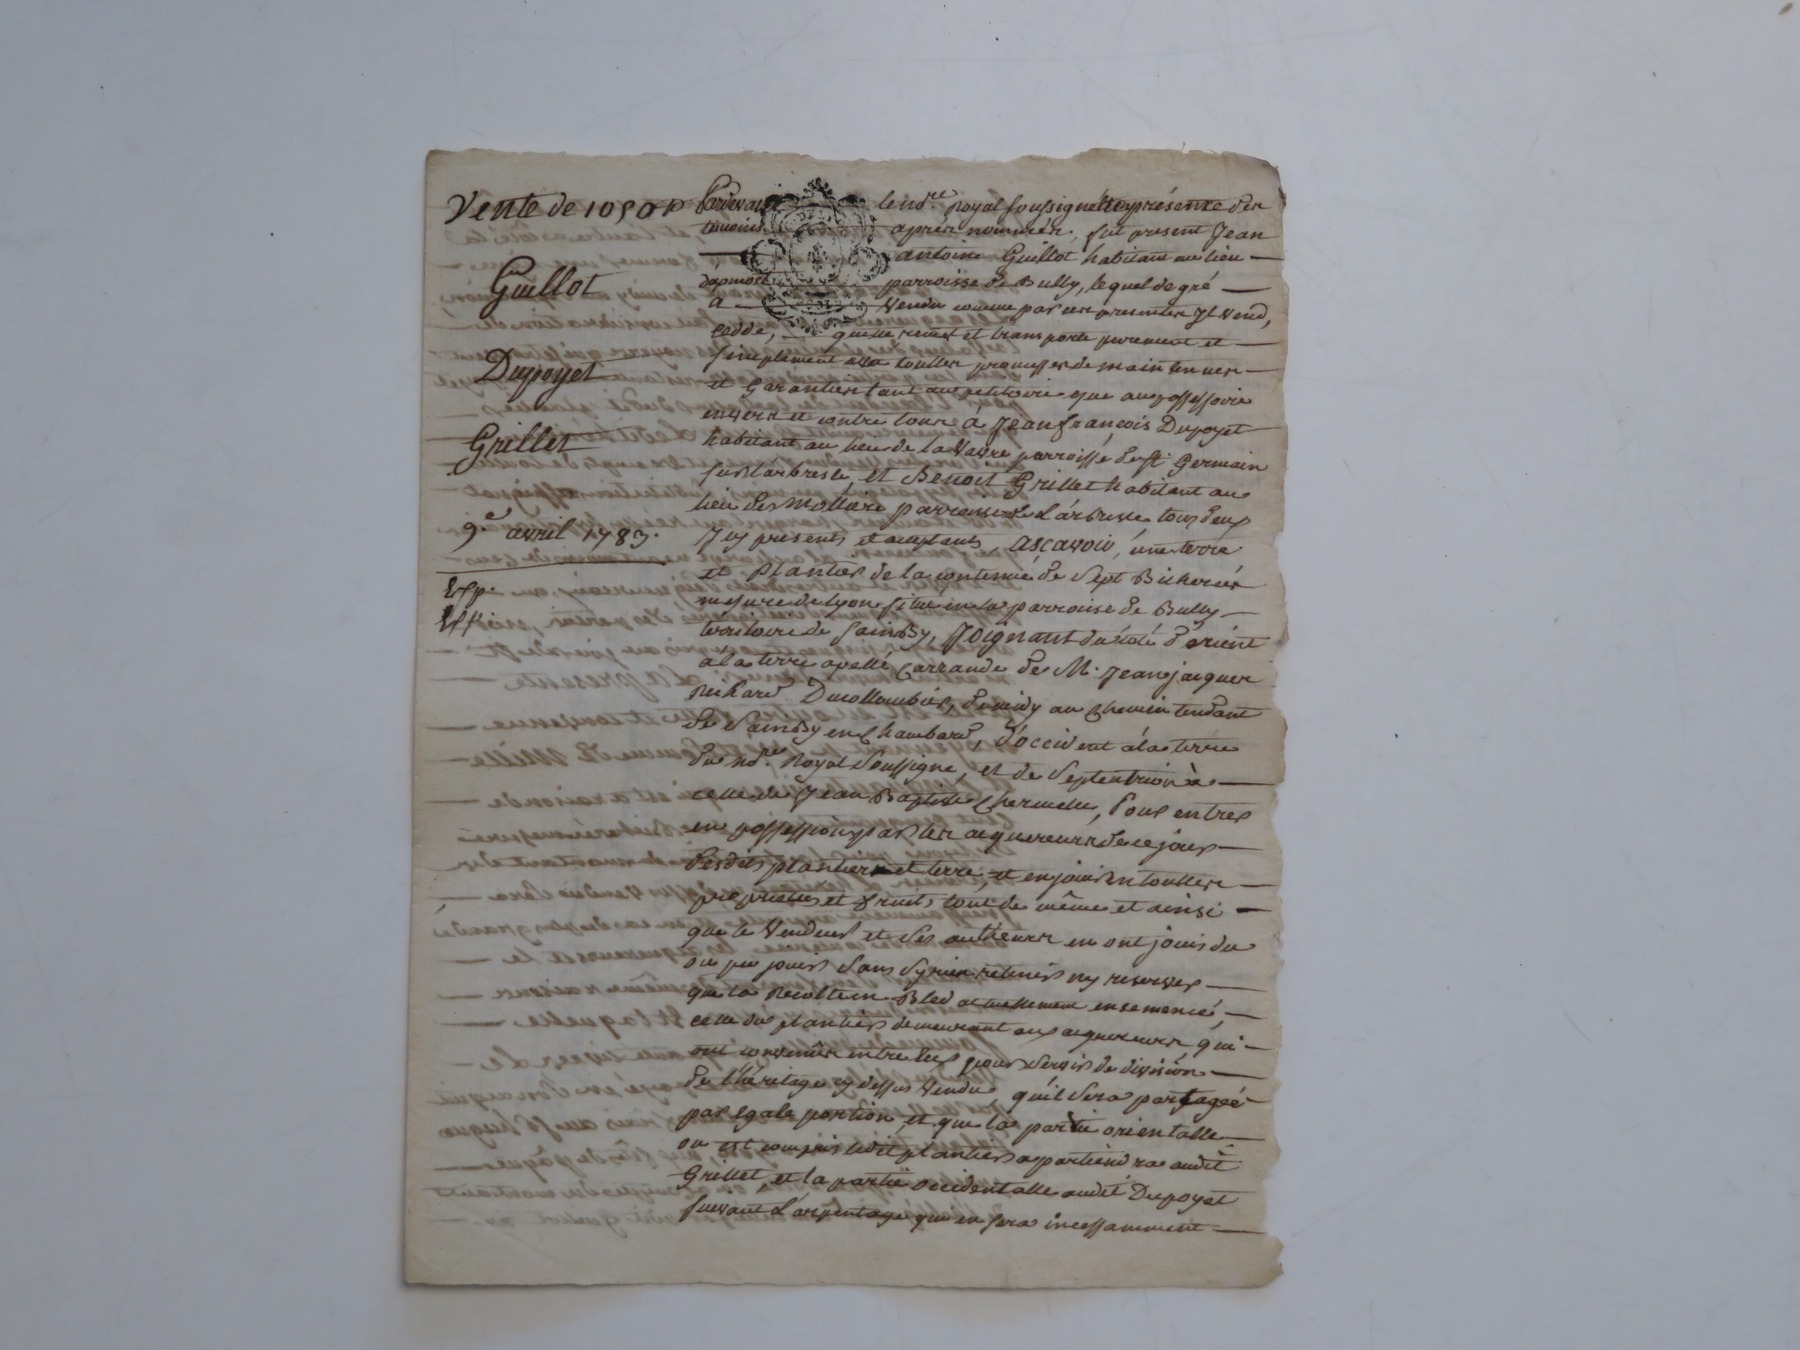 Vente de 1050 #
Guillot
Dupoyet
Grillet
9e avril 1783.
Exp.
Exp.
Pardevant le nore. Royal soussigné et en présence des
temoins après nommés. fut present Jean
antoine Guillot habitant au lieu
parroisse de Bully, lequel de gré
a vendu comme par ces presentes il vend,
cedde, quitte remet et transporte purement et
simplement avec touttes promesses de maintennes
et Garanties tant au petitoire que au possessoire
envers et contre tous à Jean françois Dupoyet
habitant au lieu de la Vavre parroisse de St. Germain
sur l'arbresle, et Benoit Grillet habitant au
lieu des mollière parroisse de l'arbresle tous deux
icy presents et acceptants, ascavoir, une terre
et plantier de la contenue de sept Bicherées
mesure de lyon situé en la parroisse de Bully
territoire de sainDy, joignant du coté d'orient
à la terre apellé Carrande de M. Jean jacques
Richard Ducollombier, de midy au chemin tendant
de sainDy en Chambard, d'occident à la terre
du nore. Royal soussigné, et de septentrion à
celle de Jean Baptiste Chermette, Pour entrer
en possession par les acquereurs de ce jour
desdits plantier et terre, et en jouir en touttes
proprietés et fruits tout de même et ainsi
que le Vendeur et ses autheurs en ont joui du
ou peu jouir sans sy rien retenir ny reserver
que la recolte en Bled actuellement ensemencé,
celle du plantier demeurant aux acquereurs qui
ont convenus entre eux pour servir de division
de l'héritage cy dessus Vendu, qu'il sera partagéé
par egale portion et que la partie orientalle
ou est compris ledit plantier apartiendra audit
Grillet et la partie occidentalle audit Dupoyet
suivant l'arpentage qui en sera incessamment